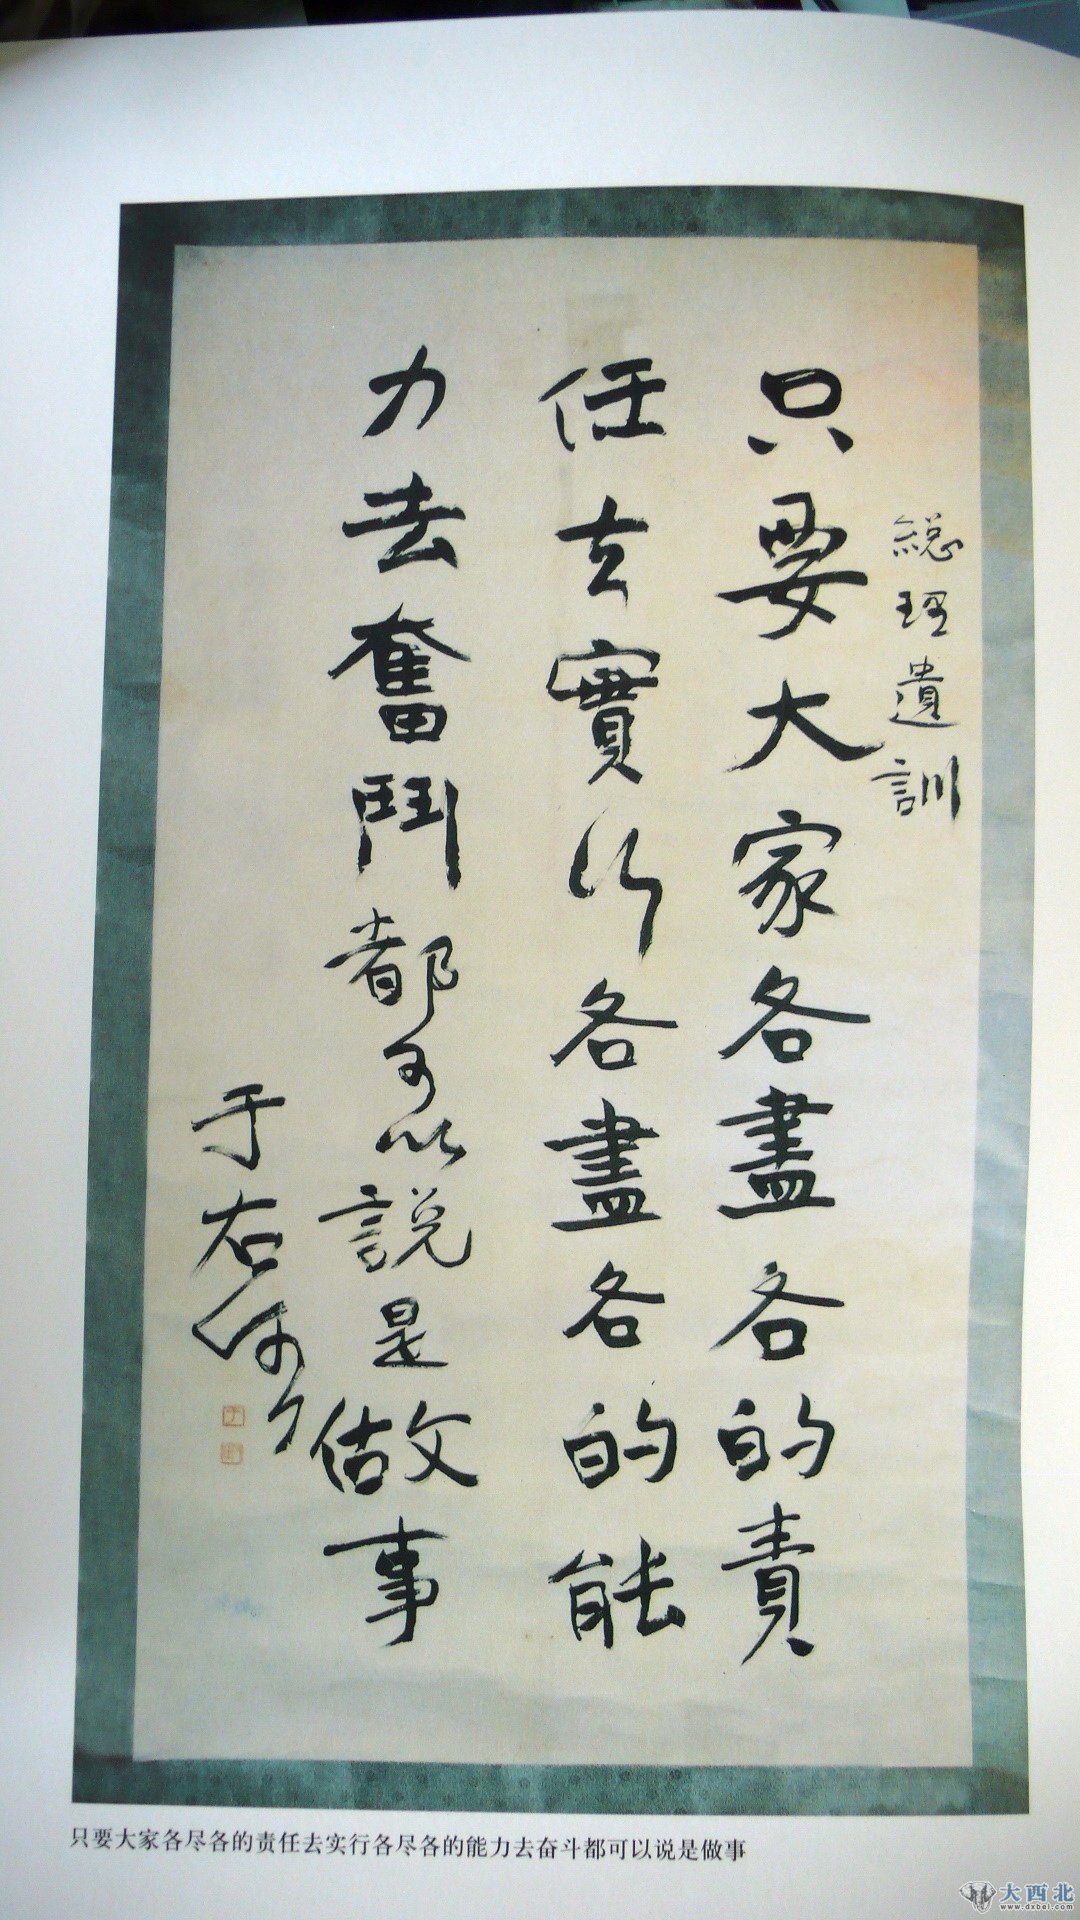 總理遺訓
只要大家各盡各的責
任去實行各盡各的能
力去奮鬥都可以説是做事
于右任
只要大家各尽各的责任去实行各尽各的能力去奋斗都可以说是做事
大西北
www.dxbei.com